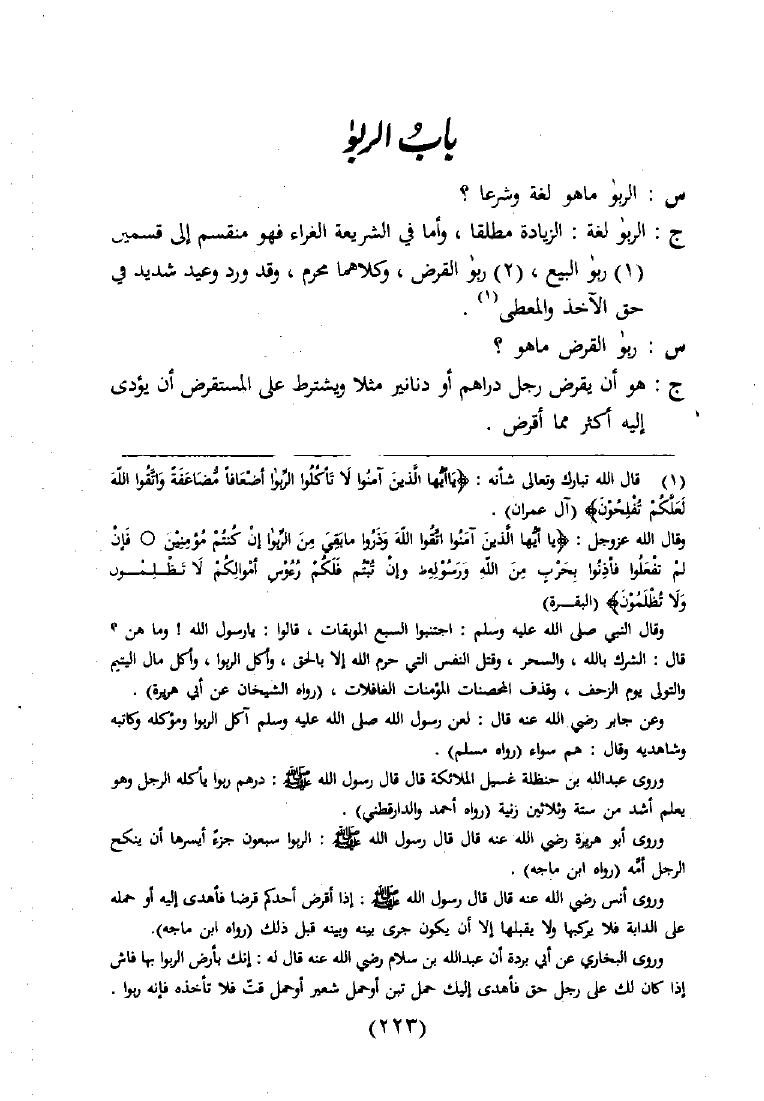 بابُ الربوٰا
س : الربوٰا ماهو لغة وشرعا ؟
ج : الربوٰا لغة : الزيادة مطلقا ، وأما في الشريعة الغراء فهو منقسم إلى قسمين
(١) ربوٰا البيع ، (٢) ربوٰا القرض ، وكلاهما محرم ، وقد ورد وعيد شديد في
حق الآخذ والمعطي(١) .
س : ربوٰا القرض ماهو ؟
ج : هو أن يقرض رجل دراهم أو دنانير مثلا ويشترط على المستقرض أن يؤدى
إليه أكثر مما أقرض .
(١) قال الله تبارك وتعالى شأنه : ﴿يَاأَيُّهَا الَّذينَ آمنُوا لَا تَأكُلُوا الرِّبوٰا أضْعَافاً مُّضَاعَفَةً وَاتَّقُوا اللّهَ
لَعَلَّكُمْ تُفْلِحُوْنَ﴾ (آل عمران) .
وقال الله عزوجل : ﴿يا أيُّها الَّذينَ آمَنُوا اتَّقُوا اللّهَ وَذَرُوا مابَقِيَ مِنَ الرِّبوٰا إنْ كُنتُمْ مُؤْمِنِيْنَ ○ فَإنْ
لَمْ تفْعَلُوا فأذِنُوا بِحَرْبٍ مِنَ اللّهِ وَرَسُوْلِهِ ط وإنْ تُبْتُم فَلَكُمْ رُءُوْسُ أمْوالِكُمْ لَا تَـظْـلِـمُــون
وَلَا تُظْلَمُوْنَ﴾ (البقــرة)
وقال النبي صلى الله عليه وسلم : اجتنبوا السبع الموبقات ، قالوا : يارسول الله ! وما هن ؟
قال : الشرك بالله ، والسحر ، وقتل النفس التي حرم الله إلا بالحق ، وأكل الربوا ، وأكل مال اليتيم
والتولى يوم الزحف ، وقذف المحصنات المؤمنات الغافلات ، (رواه الشيخان عن أبي هريرة) .
وعن جابر رضي الله عنه قال : لعن رسول الله صلى الله عليه وسلم آكل الربوا ومؤكله وكاتبه
وشاهديه وقال : هم سواء (رواه مسلم) .
وروى عبدالله بن حنظلة غسيل الملائكة قال قال رسول الله ﷺ : درهم ربوا يأكله الرجل وهو
يعلم أشد من ستة وثلاثين زنية (رواه أحمد والدارقطني) .
وروى أبو هريرة رضي الله عنه قال قال رسول الله ﷺ : الربوا سبعون جزءً أيسرها أن ينكح
الرجل أمَّه (رواه ابن ماجه) .
وروى أنس رضي الله عنه قال قال رسول الله ﷺ : إذا أقرض أحدكم قرضا فأهدى إليه أو حمله
على الدابة فلا يركبها ولا يقبلها إلا أن يكون جرى بينه وبينه قبل ذلك (رواه ابن ماجه).
وروى البخاري عن أبي بردة أن عبدالله بن سلام رضي الله عنه قال له : إنك بأرض الربوا بها فاش
إذا كان لك على رجل حق فأهدى إليك حمل تبن أوحمل شعير أوحمل قتّ فلا تأخذه فإنه ربوا .
(٢٢٣)